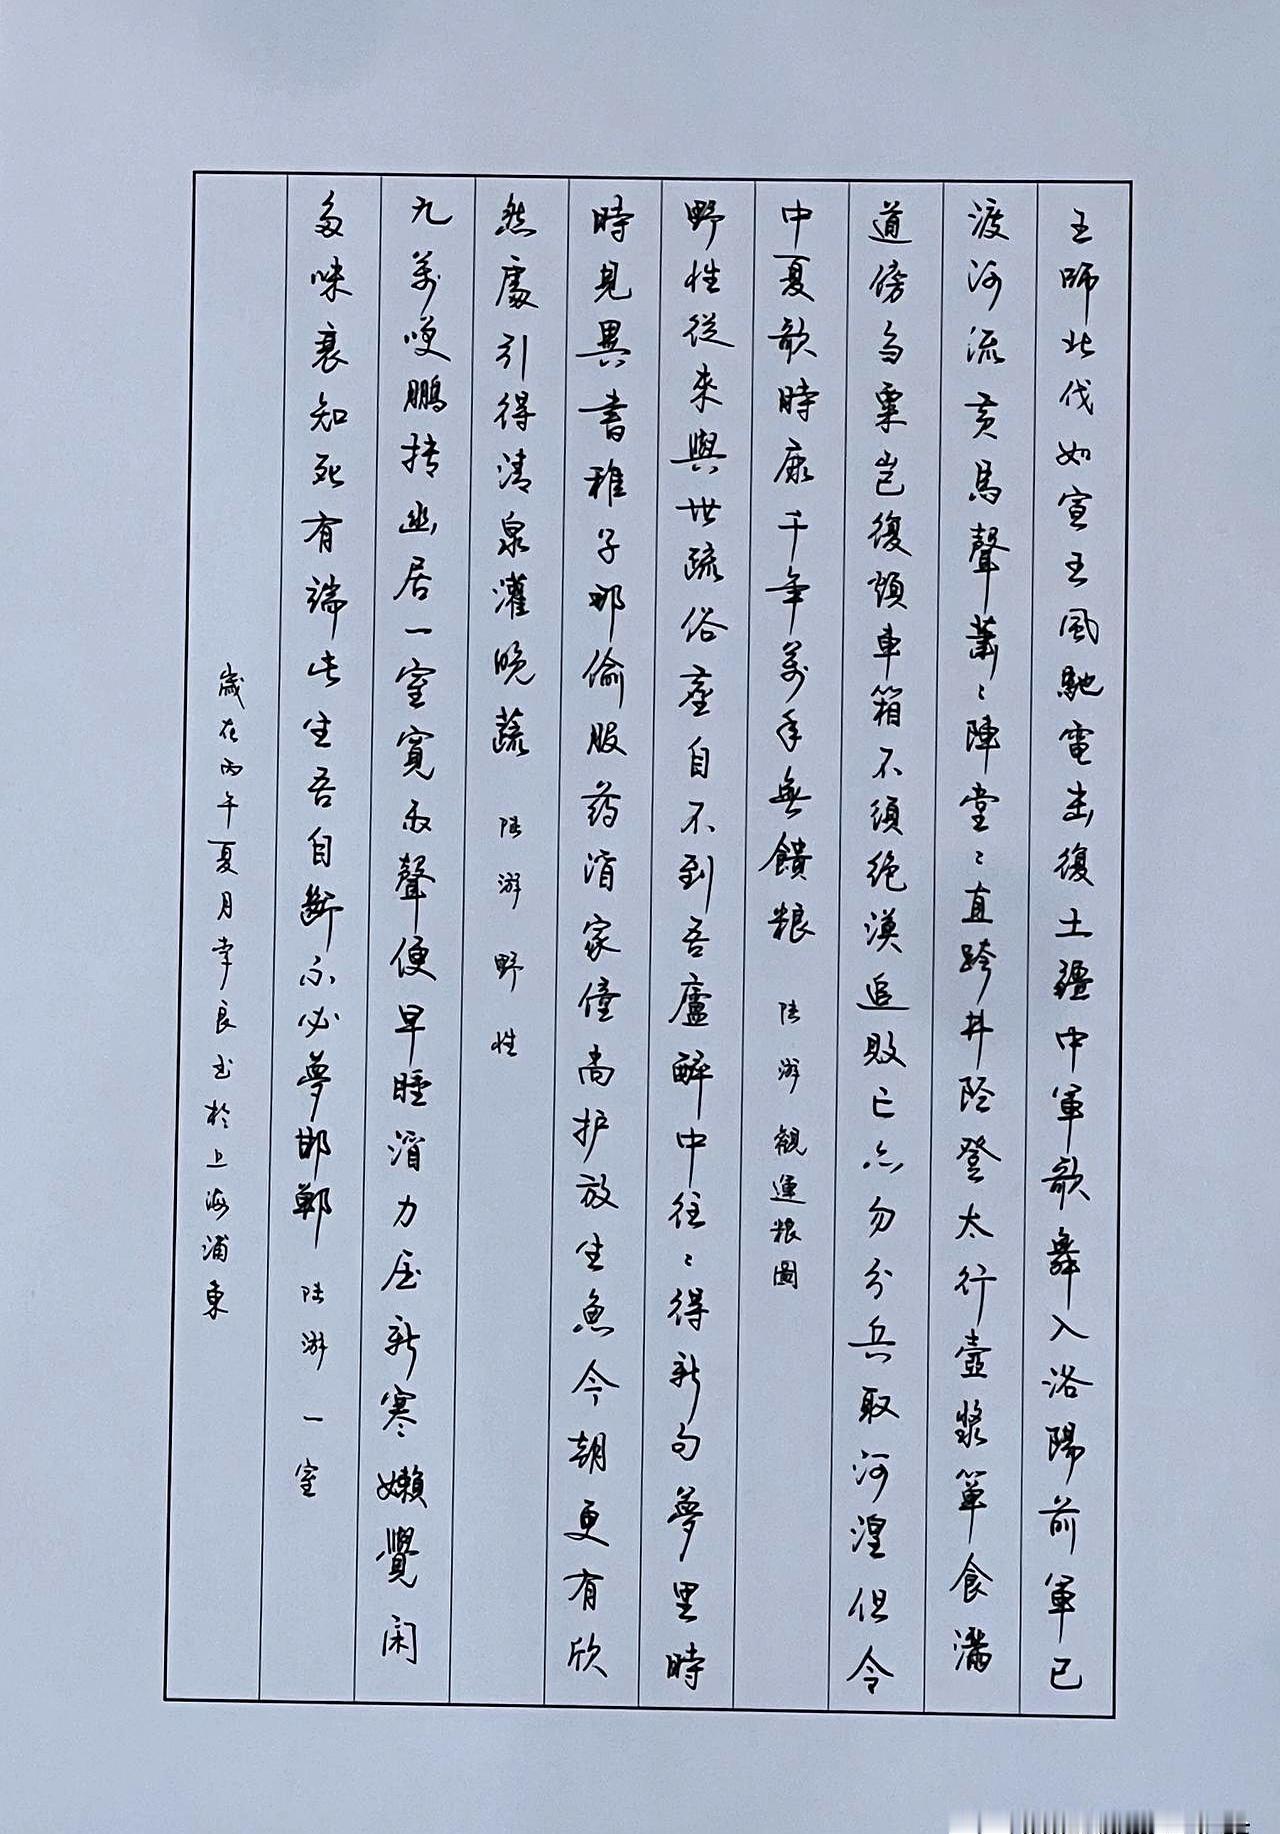 王師北伐如宣王風馳電击復土疆中軍歌舞入洛陽前軍已
渡河流黄馬聲萧〻陣堂〻直跨井陘登太行壺漿簞食滿
道傍芻粟豈復煩車箱不須絶漠追敗亡亦勿分兵取河湟但令
中夏歌時康千年萬年無饋粮 陆游 觀運粮圖
野性從来與世疏俗塵自不到吾廬醉中往〻得新句夢里時
時見異書稚子那偷服药酒家僮尚护放生魚今朝更有欣
然處引得清泉灌晚蔬 陆游 野性
九萬哽鹏抟幽居一室寬雨聲便早睡酒力压新寒嬾覺闲
多味衰知死有端此生吾自斷不必夢邯鄲 陆游 一室
歲在丙午夏月幸良书於上海浦東